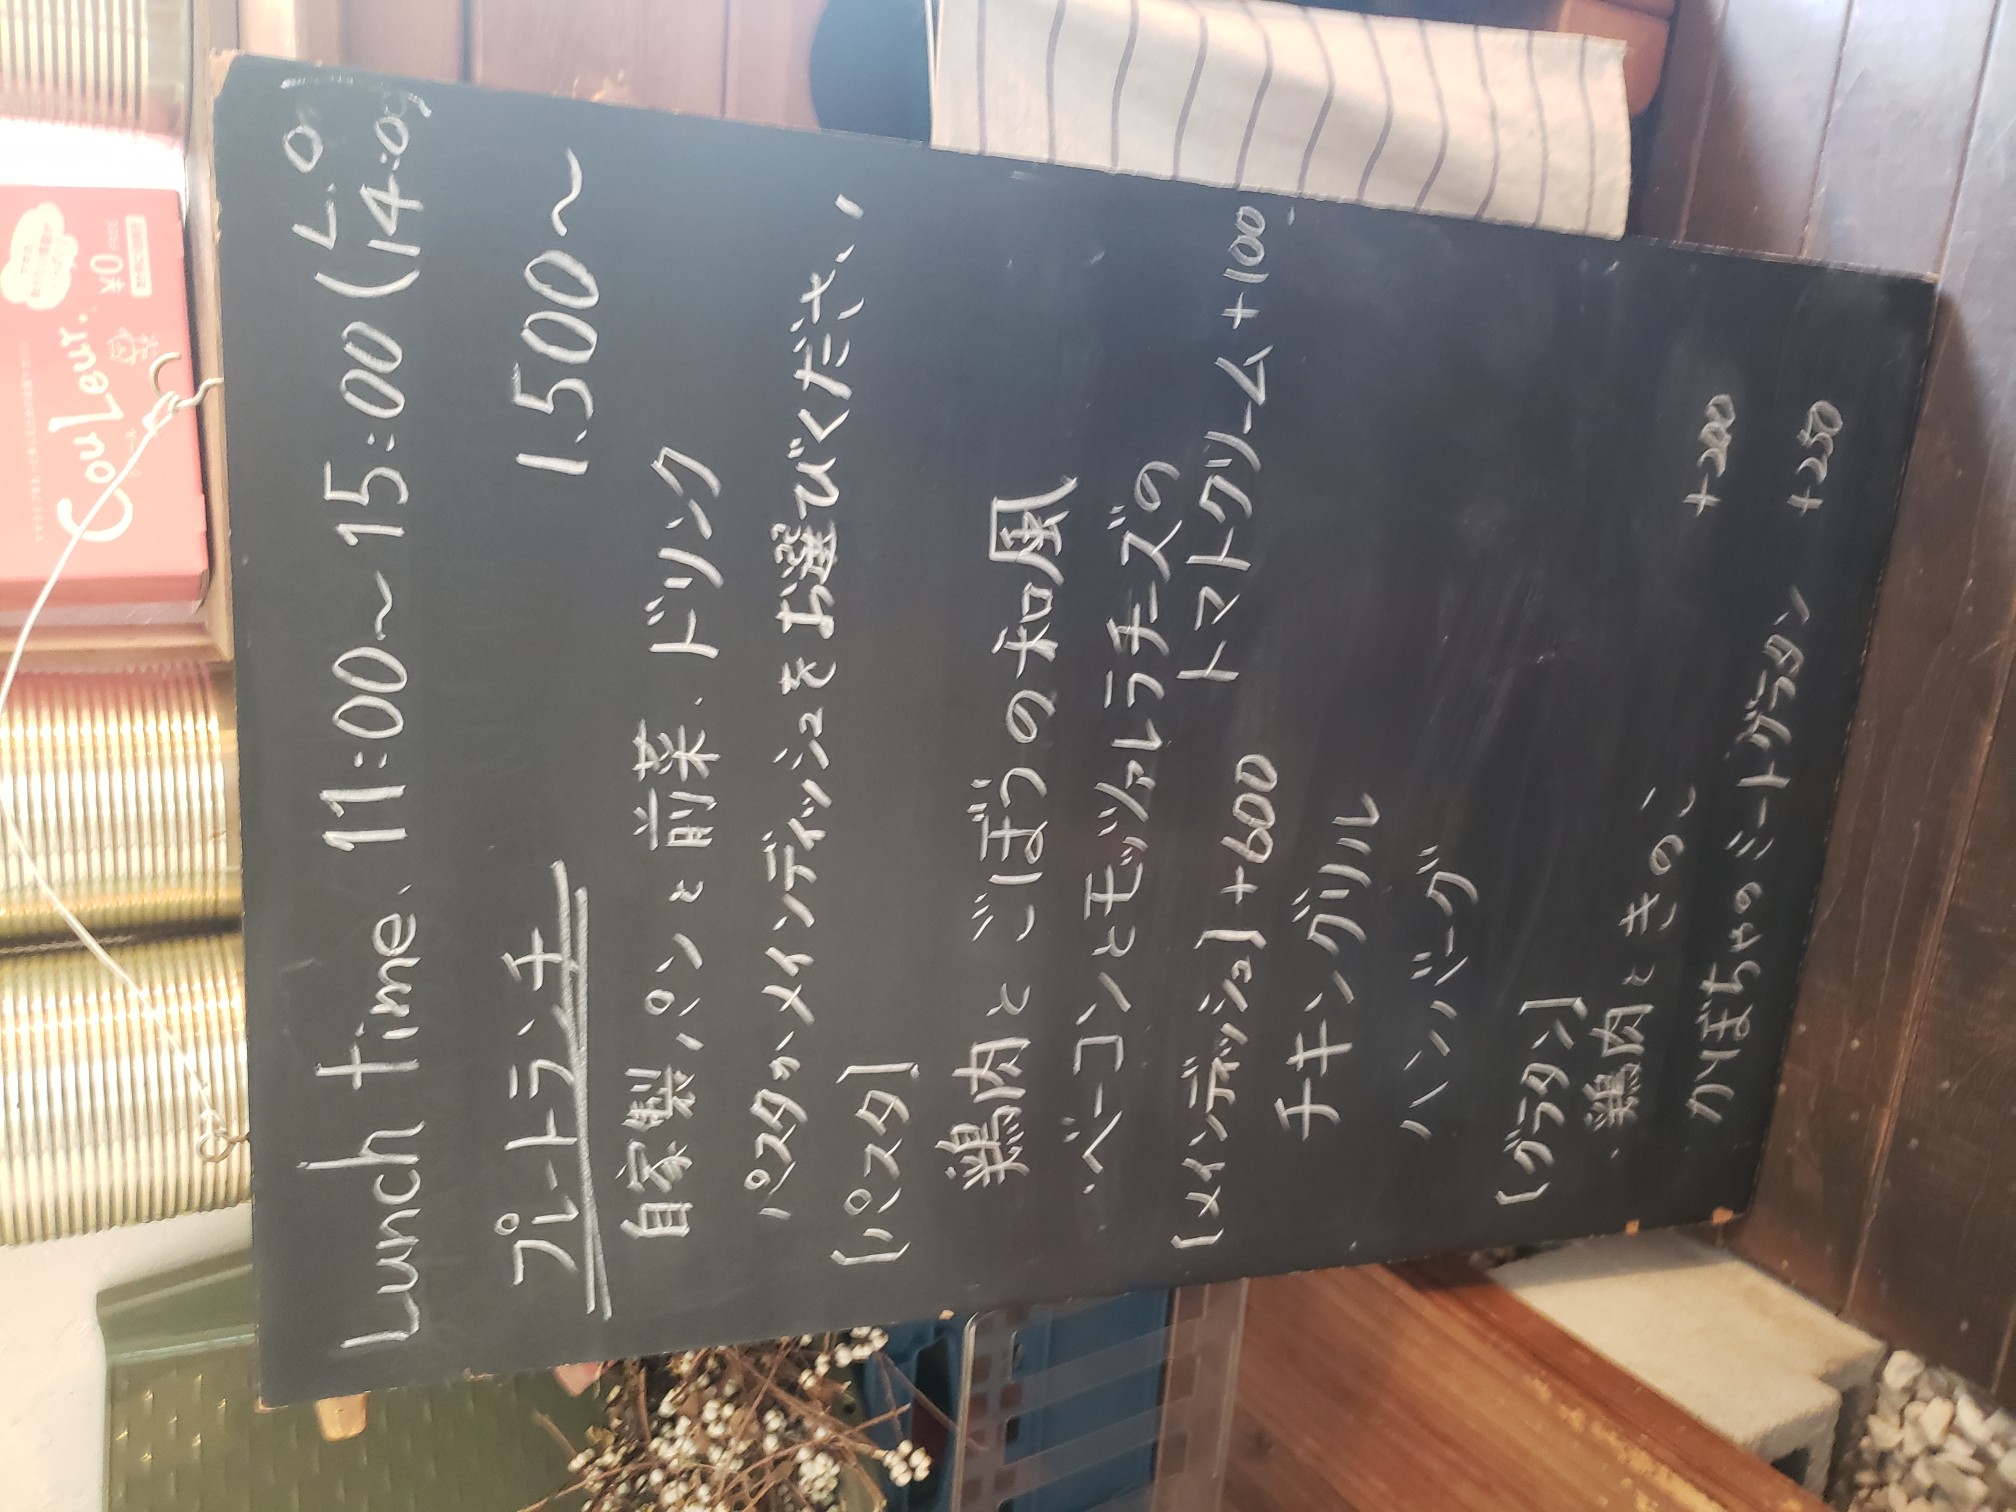 Lunch time. 11:00〜15:00 (L.O 14:00)
プレートランチ 1.500〜
自家製パンと前菜、ドリンク
パスタかメインディッシュをお選びください
[パスタ]
鶏肉とごぼうの和風
・ベーコンとモッツァレラチーズの
トマトクリーム+100
[メインディッシュ]+600
チキングリル
ハンバーグ
[グラタン]
・鶏肉ときのこ +200
かぼちゃのミートグラタン +250
Couleur.